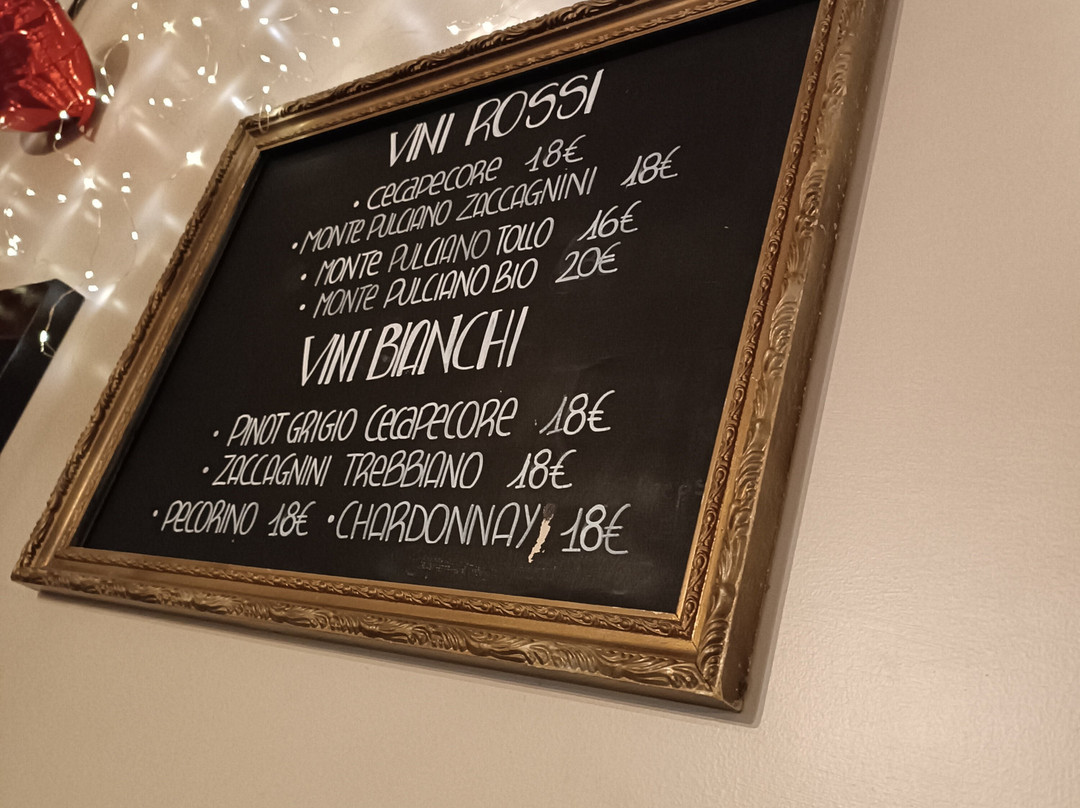 VINI ROSSI
• CECAPECORE 18€
• MONTE PULCIANO ZACCAGNINI 18€
• MONTE PULCIANO TOLLO 16€
• MONTE PULCIANO BIO 20€
VINI BIANCHI
• PINOT GRIGIO CECAPECORE 18€
• ZACCAGNINI TREBBIANO 18€
• PECORINO 18€ • CHARDONNAY 18€